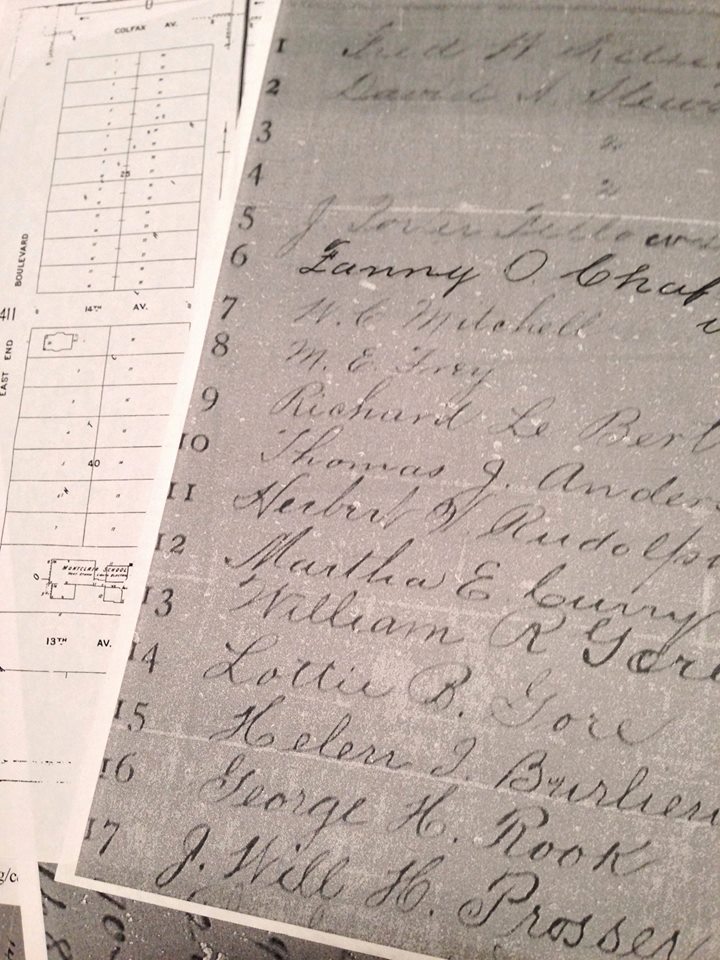 COLFAX AV.
25
BOULEVARD
14TH AV.
411
EAST END
40
MONTCLAIR SCHOOL
13TH AV.
g/c
1 Fred H
2 David A. Stew
3 "
4 "
5 J
6 Fanny O. Chap
7 W. C. Mitchell
8 M. E. Frey
9 Richard Le Bert
10 Thomas J. Anders
11 Herbert W Rudolph
12 Martha E Curry
13 William R Gore
14 Lottie B. Gore
15 Helen J. Burlien
16 George H. Rook
17 J. Will H. Prosser